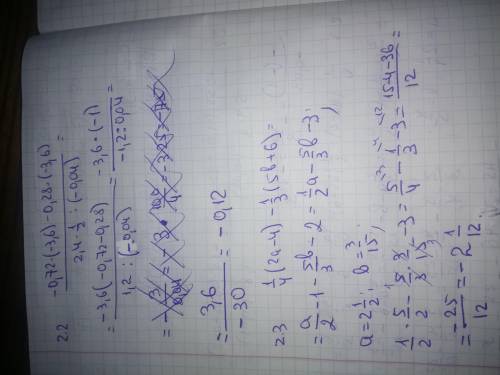 2.2 (-0,72·(-3,6)-0,28·(-3,6))/(2,4·1/2:(-0,04)) =
= (-3,6(-0,72-0,28))/(1,2:(-0,04)) = (-3,6·(-1))/(-1,2:0,04) =
= 3,6/-30 = -0,12
2.3 1/4(2a-4)-1/3(5b+6)=
= a/2-1-5b/3-2 = 1/2a-5/3b-3;
a=2 1/2; b=3/15;
1/2·5/2-5/3·3/15-3= 5/4-1/3-3= (15-4-36)/12 =
= -25/12 = -2 1/12.